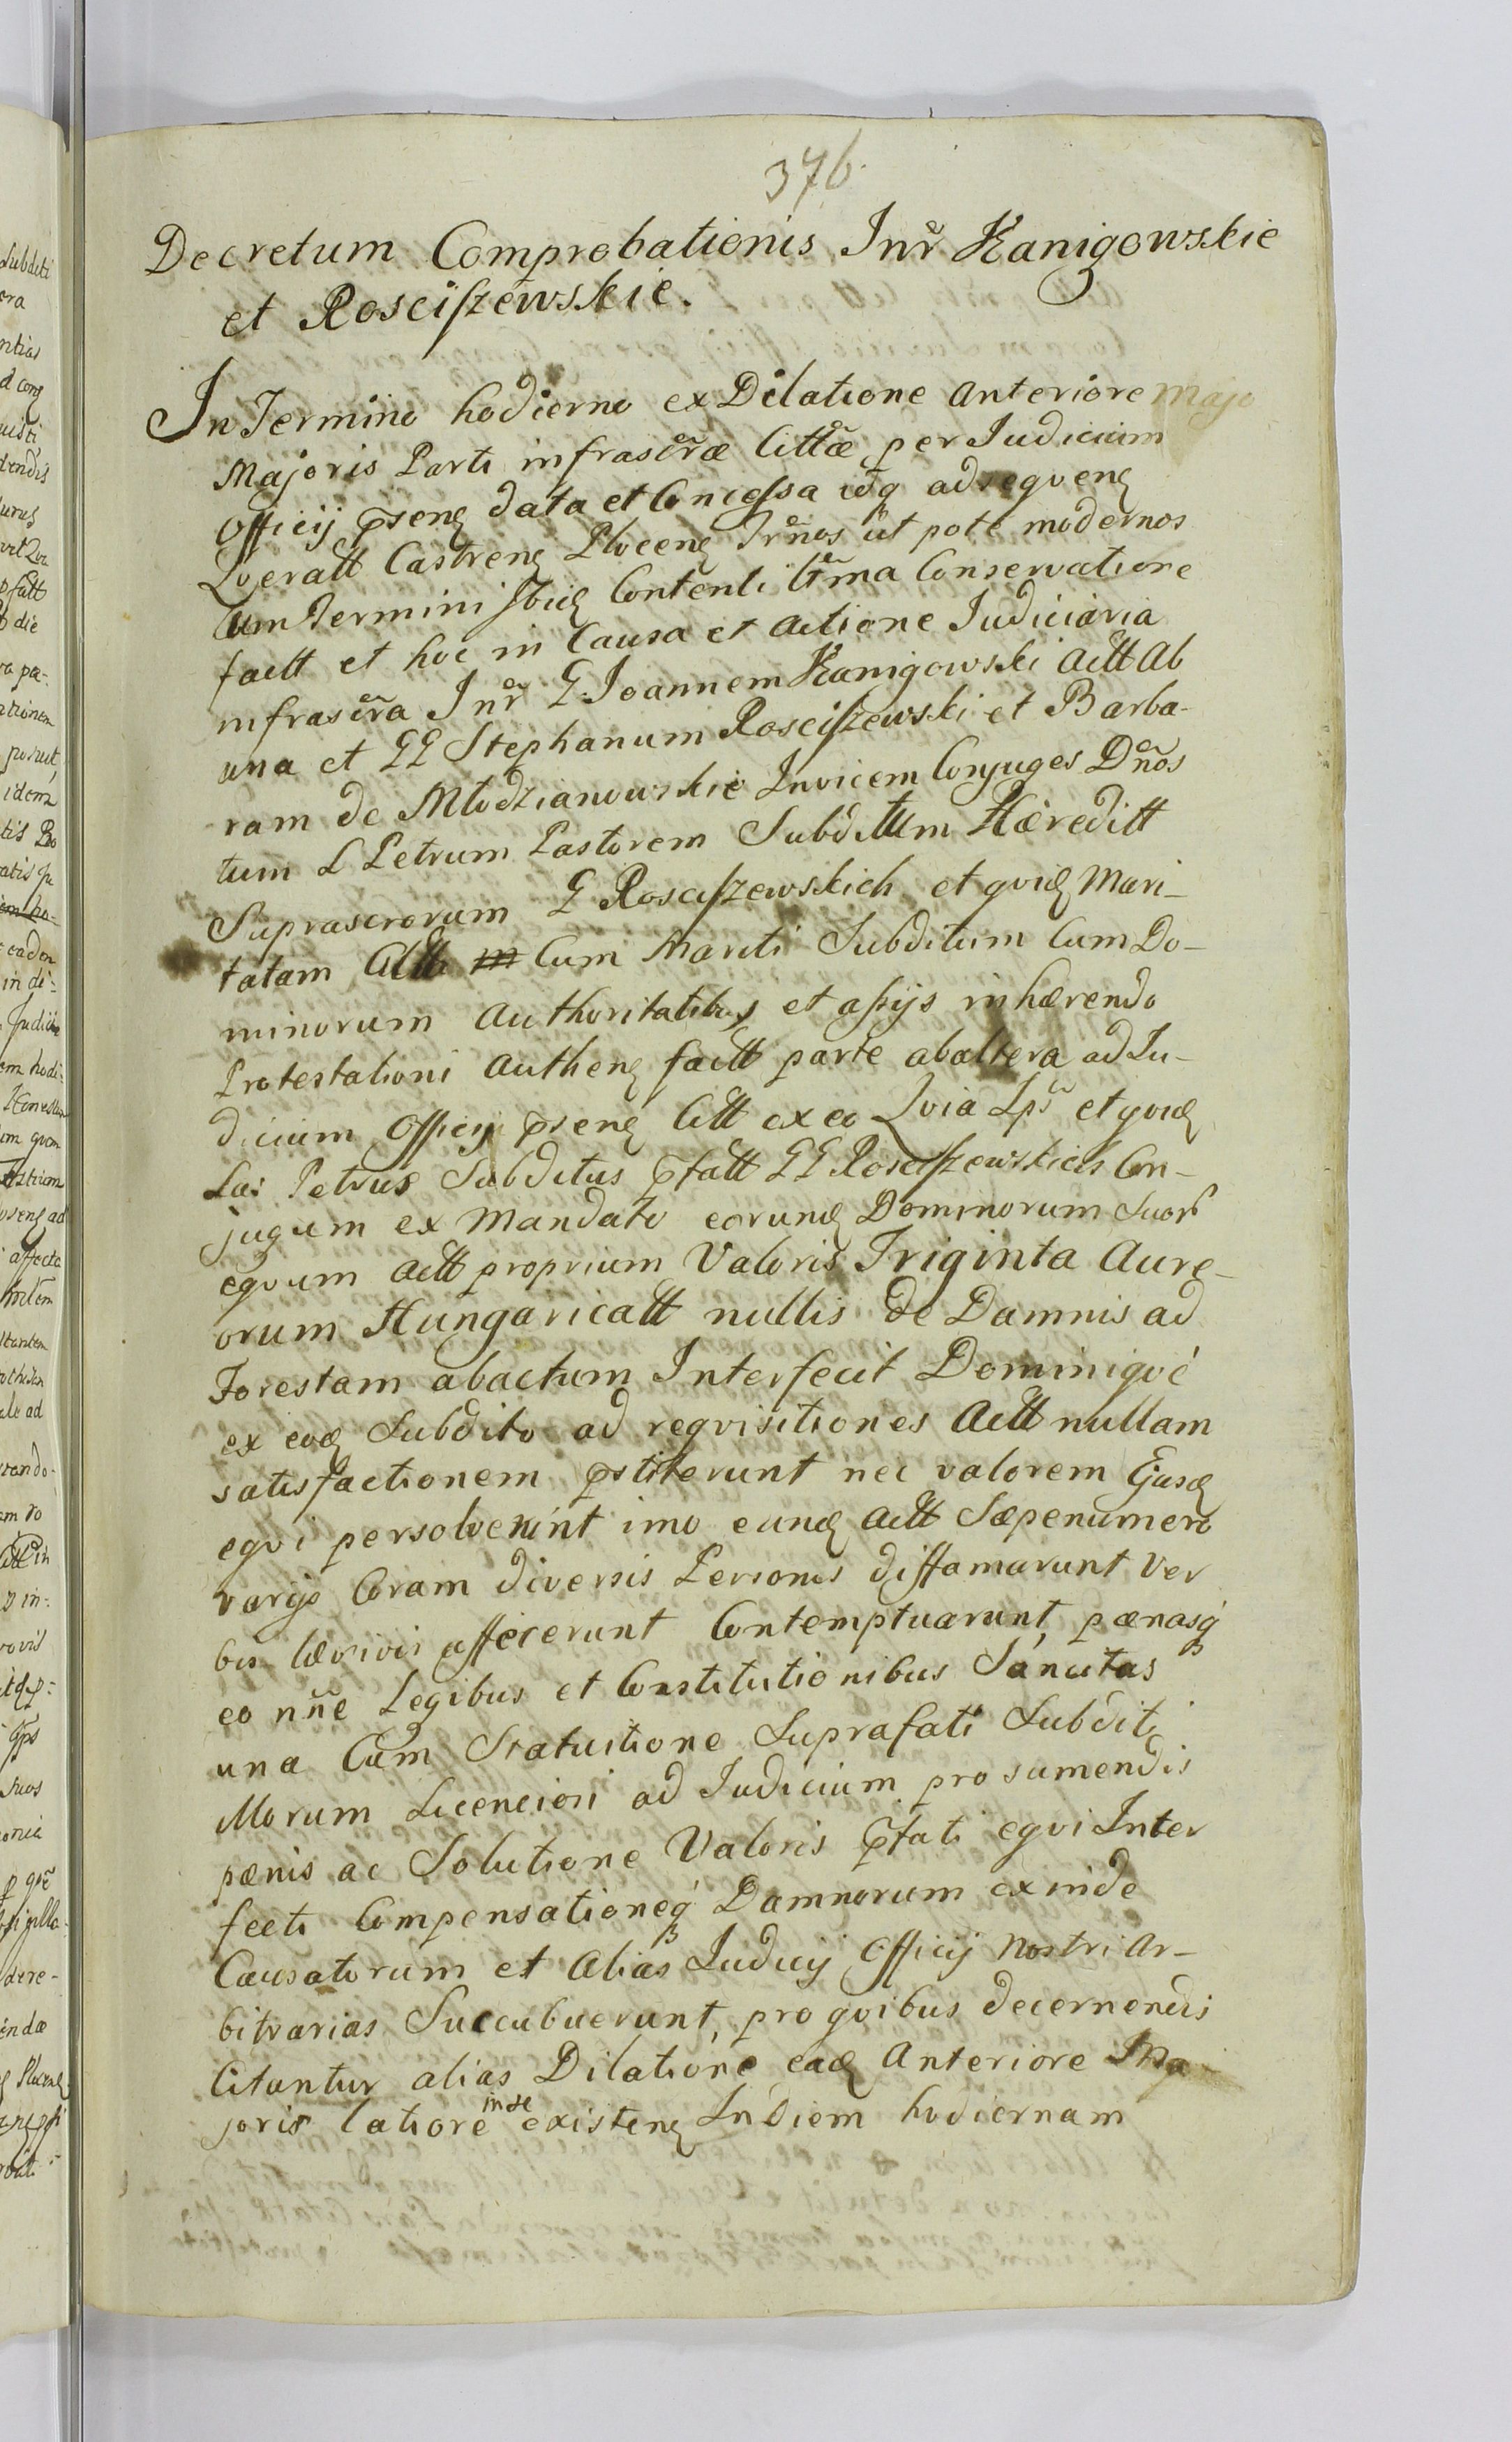 376.
Decretum Comprobationis Inr̃ Kanigowskie
et Rosciszewskie.
In Termino hodierno ex Dilatione anteriore Majo
Majoris Parti infrascr̃æ Cittæ per Judicium
Officij pr̃senę data et Concessa idq adsequenę
Querałł Castrenę Plocenę Tr̃nos ut pote modernos
Cum Termini Contenti Conservatione
factt et hoc in Causa et actione Judiciaria
infrascr̃a Inr̃ G. Joannem Kanigowski Actt ab
una et GG Stephanum Rosciszewski et Barba-
ram de Młodzianowskie Invicem Conjuges Dños
tum L Petrum Pastorem Subditum Hæreditt
Suprascrorum G Rosciszewskich et quidę Mari-
tatam Actt Cum Mariti Subditum Cum Do-
minorum Authoritatibus et assijs inhærendo
Protestationi authenę factt parte abaltera ad Ju-
dicium Officij pr̃senę Citt ex eo Quia Ips̃ et quidę
Las Petrus Subditus pr̃fatt GG Rosciszewskich Con-
jugum ex Mandato eorundę Dominorum Suor
equum actt proprium Valoris Triginta Aure-
orum Hungaricatt nullis de Damnis ad
Forestam abactum Interfecit Dominiqvé
ex eodę Subdito ad reqvisitiones Actt nullam
satisfactionem pr̃stiterunt nec valorem Ejusdę
eqvi persolverunt imo eundę actt Sæpenumero
varijs Coram diversis Personis diffamarunt Ver
bis læsivis affecerunt Contemptuarunt, pænasq
eo nñe Legibus et Constitutionibus Sancitas
una Cum Statuitione Suprafati Subditi
Morum Licenciori ad Judicium pro sumendis
pænis ac Solutione Valoris pr̃fati eqvi Inter
fecti Compensationeq Damnorum exinde
Causatorum et alias Judicij Officij Nostri Ar-
bitrarias Succubuerunt, pro qvibus decernendis
Citantur alias Dilatione eadę Anteriore Ma
joris latiore inde existenę In diem hodiernam